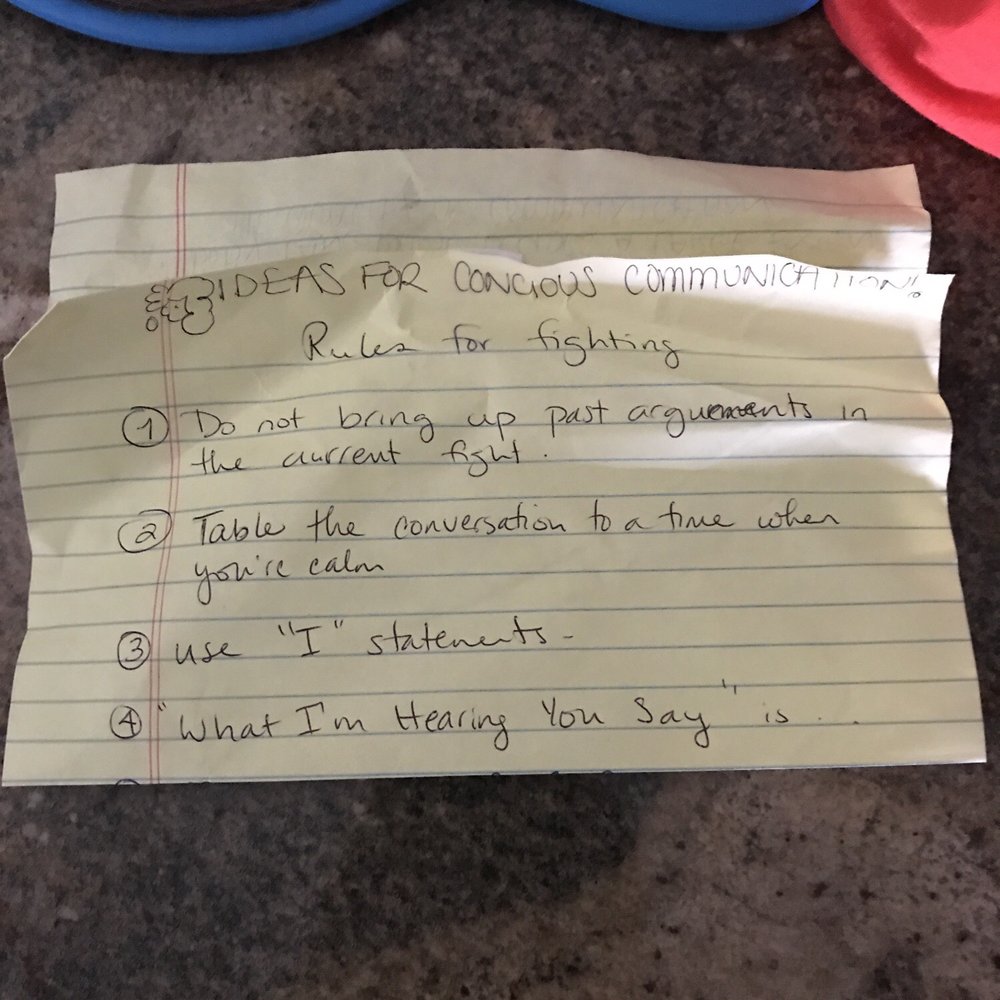 IDEAS FOR CONCIOUS COMMUNICATION!
Rules for fighting
1 Do not bring up past arguements in
the current fight.
2 Table the conversation to a time when
you're calm
3 use "I" statements-
4 "What I'm Hearing You Say" is...